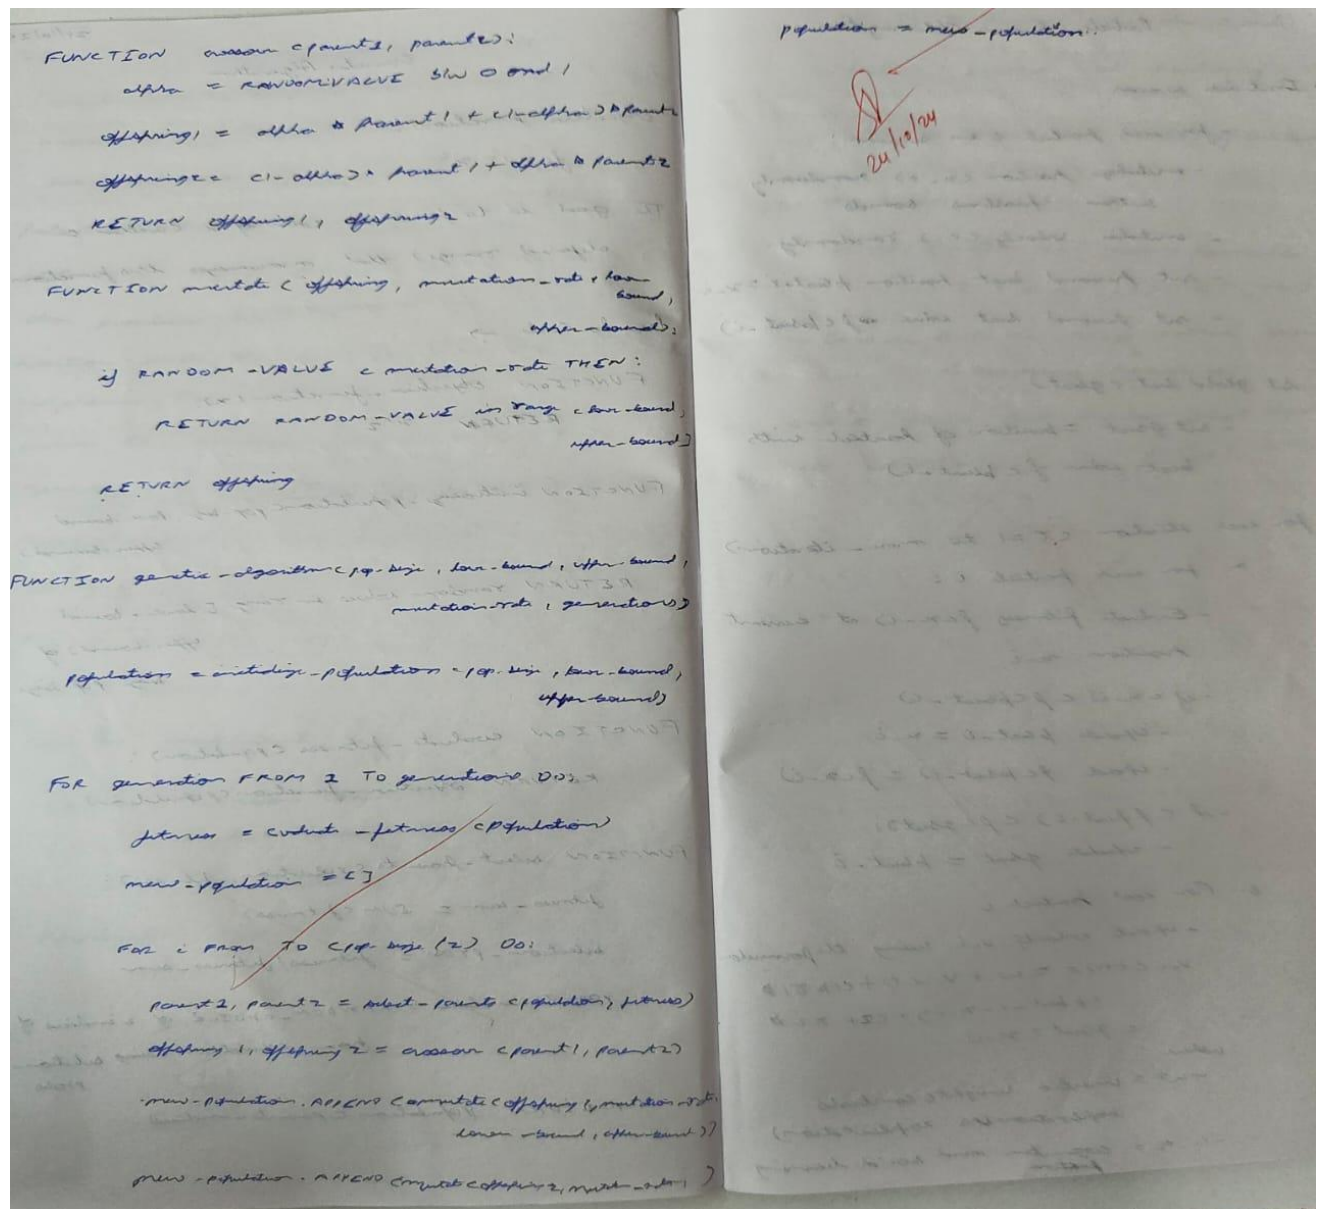 FUNCTION crossover (parent1, parent2):
alpha = RANDOM-VALUE b/w 0 and 1
offspring1 = alpha * parent1 + (1-alpha) * parent2
offspring2 = (1-alpha) * parent1 + alpha * parent2
RETURN offspring1, offspring2
FUNCTION mutate (offspring, mutation_rate, low-
bound,
upper-bound):
if RANDOM-VALUE < mutation-rate THEN:
RETURN RANDOM-VALUE in range (low-bound,
upper-bound]
RETURN offspring
FUNCTION genetic-algorithm (pop-size, low-bound, upper-bound,
mutation-rate, generations)
population = initialize-population (pop-size, low-bound,
upper-bound)
FOR generation FROM 1 TO generations DO:
fitness = evaluate-fitness (population)
new-population = []
FOR i FROM TO (pop-size/2) DO:
parent1, parent2 = select-parents (population, fitness)
offspring1, offspring2 = crossover (parent1, parent2)
new-population.APPEND (mutate (offspring1, mutation-rate,
lower-bound, upper-bound))
new-population.APPEND (mutate (offspring2, )
population = new-population.
24/10/24